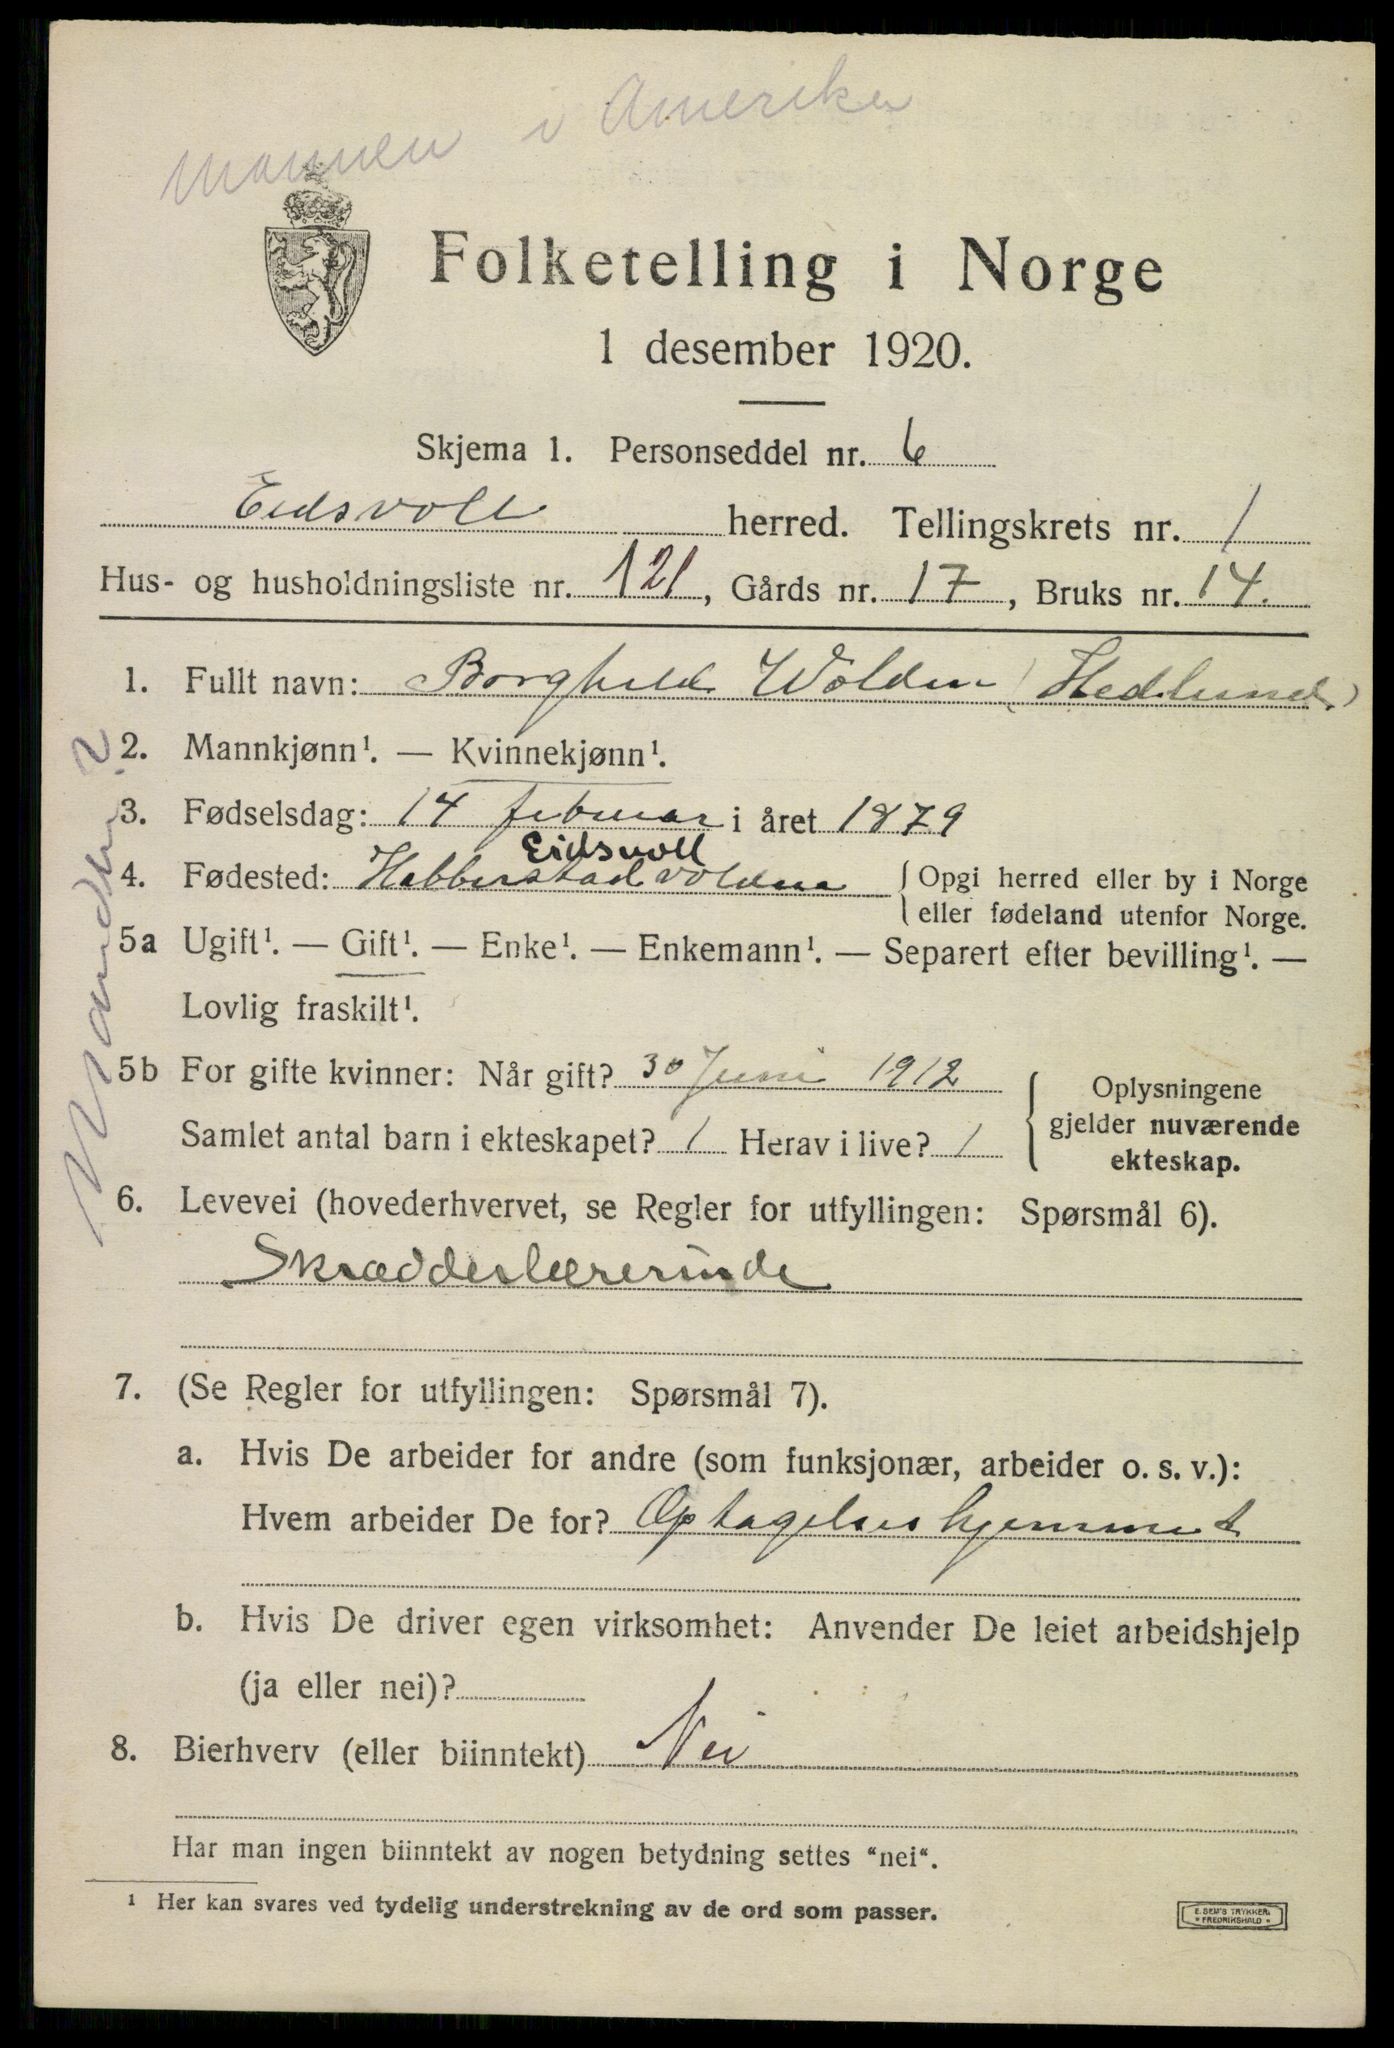 Mannen i Amerika
Folketelling i Norge
1 desember 1920.
Skjema 1. Personseddel nr. 6
Eidsvoll herred. Tellingskrets nr. 1
Hus- og husholdningsliste nr. 121, Gårds nr. 17, Bruks nr. 14.
1. Fullt navn: Borghild Wolden (Hedlund)
2. Mannkjønn¹. — Kvinnekjønn¹.
3. Fødselsdag: 14 februar i året 1879
Eidsvoll
4. Fødested: Habberstad voldena { Opgi herred eller by i Norge
eller fødeland utenfor Norge.
5a Ugift¹. — Gift¹. — Enke¹. — Enkemann¹. — Separert efter bevilling¹. —
Lovlig fraskilt¹.
5b For gifte kvinner: Når gift? 30 Juni 1912
Samlet antal barn i ekteskapet? 1 Herav i live? 1
Oplysningene
gjelder nuværende
ekteskap.
6. Levevei (hovederhvervet, se Regler for utfyllingen: Spørsmål 6).
Skrædderlærerinde
7. (Se Regler for utfyllingen: Spørsmål 7).
a. Hvis De arbeider for andre (som funksjonær, arbeider o. s. v.):
Hvem arbeider De for? Optagelseshjemmet
b. Hvis De driver egen virksomhet: Anvender De leiet arbeidshjelp
(ja eller nei)?
8. Bierhverv (eller biinntekt) Nei
Har man ingen biinntekt av nogen betydning settes "nei".
¹ Her kan svares ved tydelig understrekning av de ord som passer.
E. SEM'S TRYKKERI
* FREDRIKSHALD *